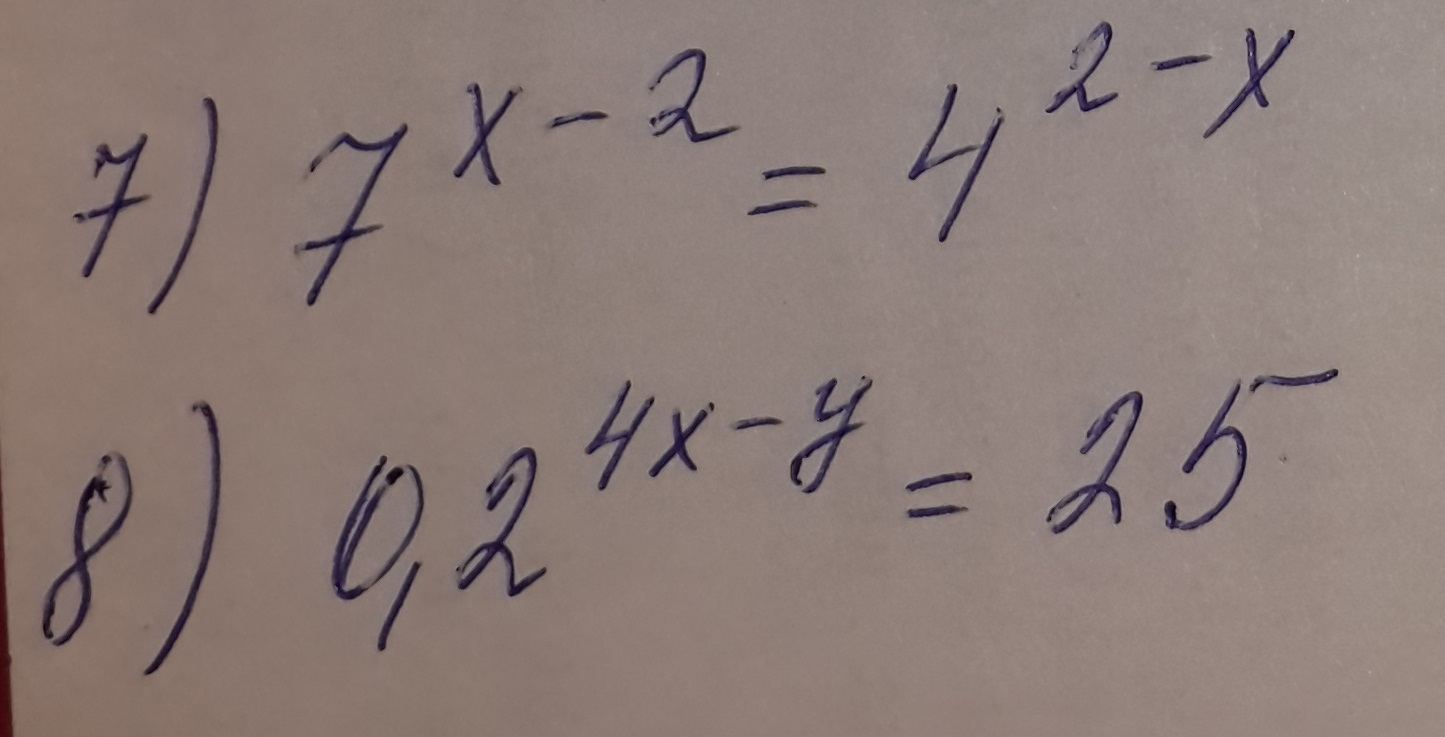 7) 7^{x-2} = 4^{2-x}
8) 0,2^{4x-y} = 25